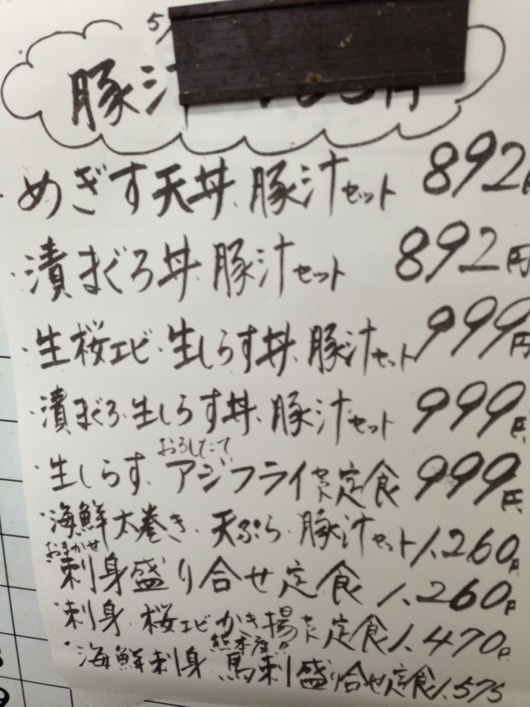 5/
豚汁
・めぎす天丼、豚汁セット 892円
・漬まぐろ丼、豚汁セット 892円
・生桜エビ・生しらす丼、豚汁セット 999円
・漬まぐろ、生しらす丼、豚汁セット 999円
おろしたて
・生しらす、アジフライセット定食 999円
・海鮮太巻き、天ぷら、豚汁セット 1,260円
おまかせ
刺身盛り合せ定食 1,260円
・刺身、桜エビかき揚セット定食 1,470円
熊本産!!
・海鮮刺身、馬刺盛り合せ定食 1,575